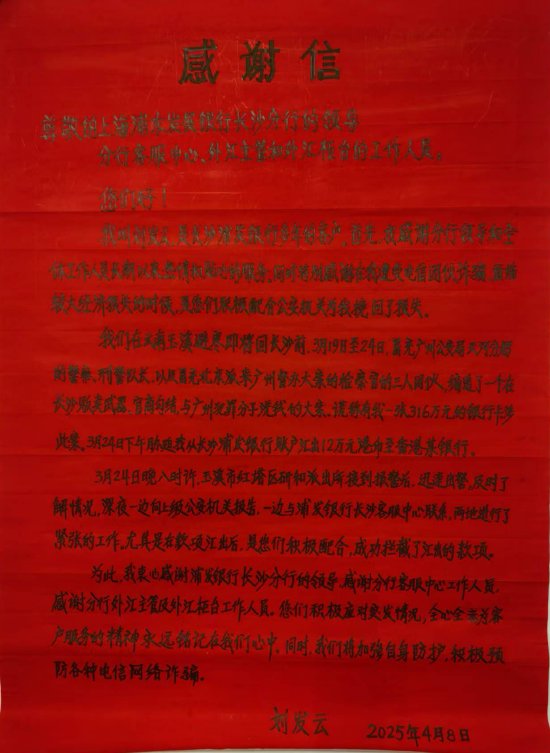 感谢信
尊敬的上海浦东发展银行长沙分行的领导
分行客服中心、外汇主管和外汇柜台的工作人员。
您们好！
我叫刘发云，是长沙浦发银行多年的客户，首先，我感谢分行领导和全
体工作人员长期以来热情和周到的服务。同时特别感谢在我遭受电信团伙诈骗 面临
较大经济损失的时候，是您们积极配合公安机关为我挽回了损失。
我们在云南玉溪避寒即将回长沙前，3月19日至24日，冒充广州公安局 分局
的警察、刑警队长，以及冒充北京派来广州督办大案的检察官的三人团伙，编造了一个在
长沙贩卖武器，官商勾结，与广州犯罪分子洗钱的大案。谎称有我一张316万元的银行卡涉
此案。3月24日下午胁迫我从长沙浦发银行账户汇出12万元港币至香港某银行。
3月24日晚八时许，玉溪市红塔区研和派出所接到报警后，迅速出警，及时了
解情况，深夜一边向上级公安机关报告，一边与浦发银行长沙客服中心联系，两地进行了
紧张的工作。尤其是在款项汇出后，是您们积极配合，成功拦截了汇出的款项。
为此，我衷心感谢浦发银行长沙分行的领导，感谢分行客服中心工作人员，
感谢分行外汇主管及外汇柜台工作人员。您们积极应对突发情况，全心全意为客
户服务的精神永远铭记在我们心中。同时，我们将加强自身防护，积极预
防各种电信网络诈骗。
刘发云 2025年4月8日